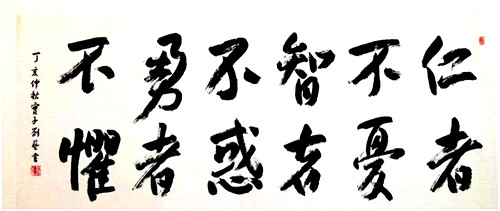 仁者
不憂
智者
不惑
勇者
不懼
丁亥仲秋 劉藝書